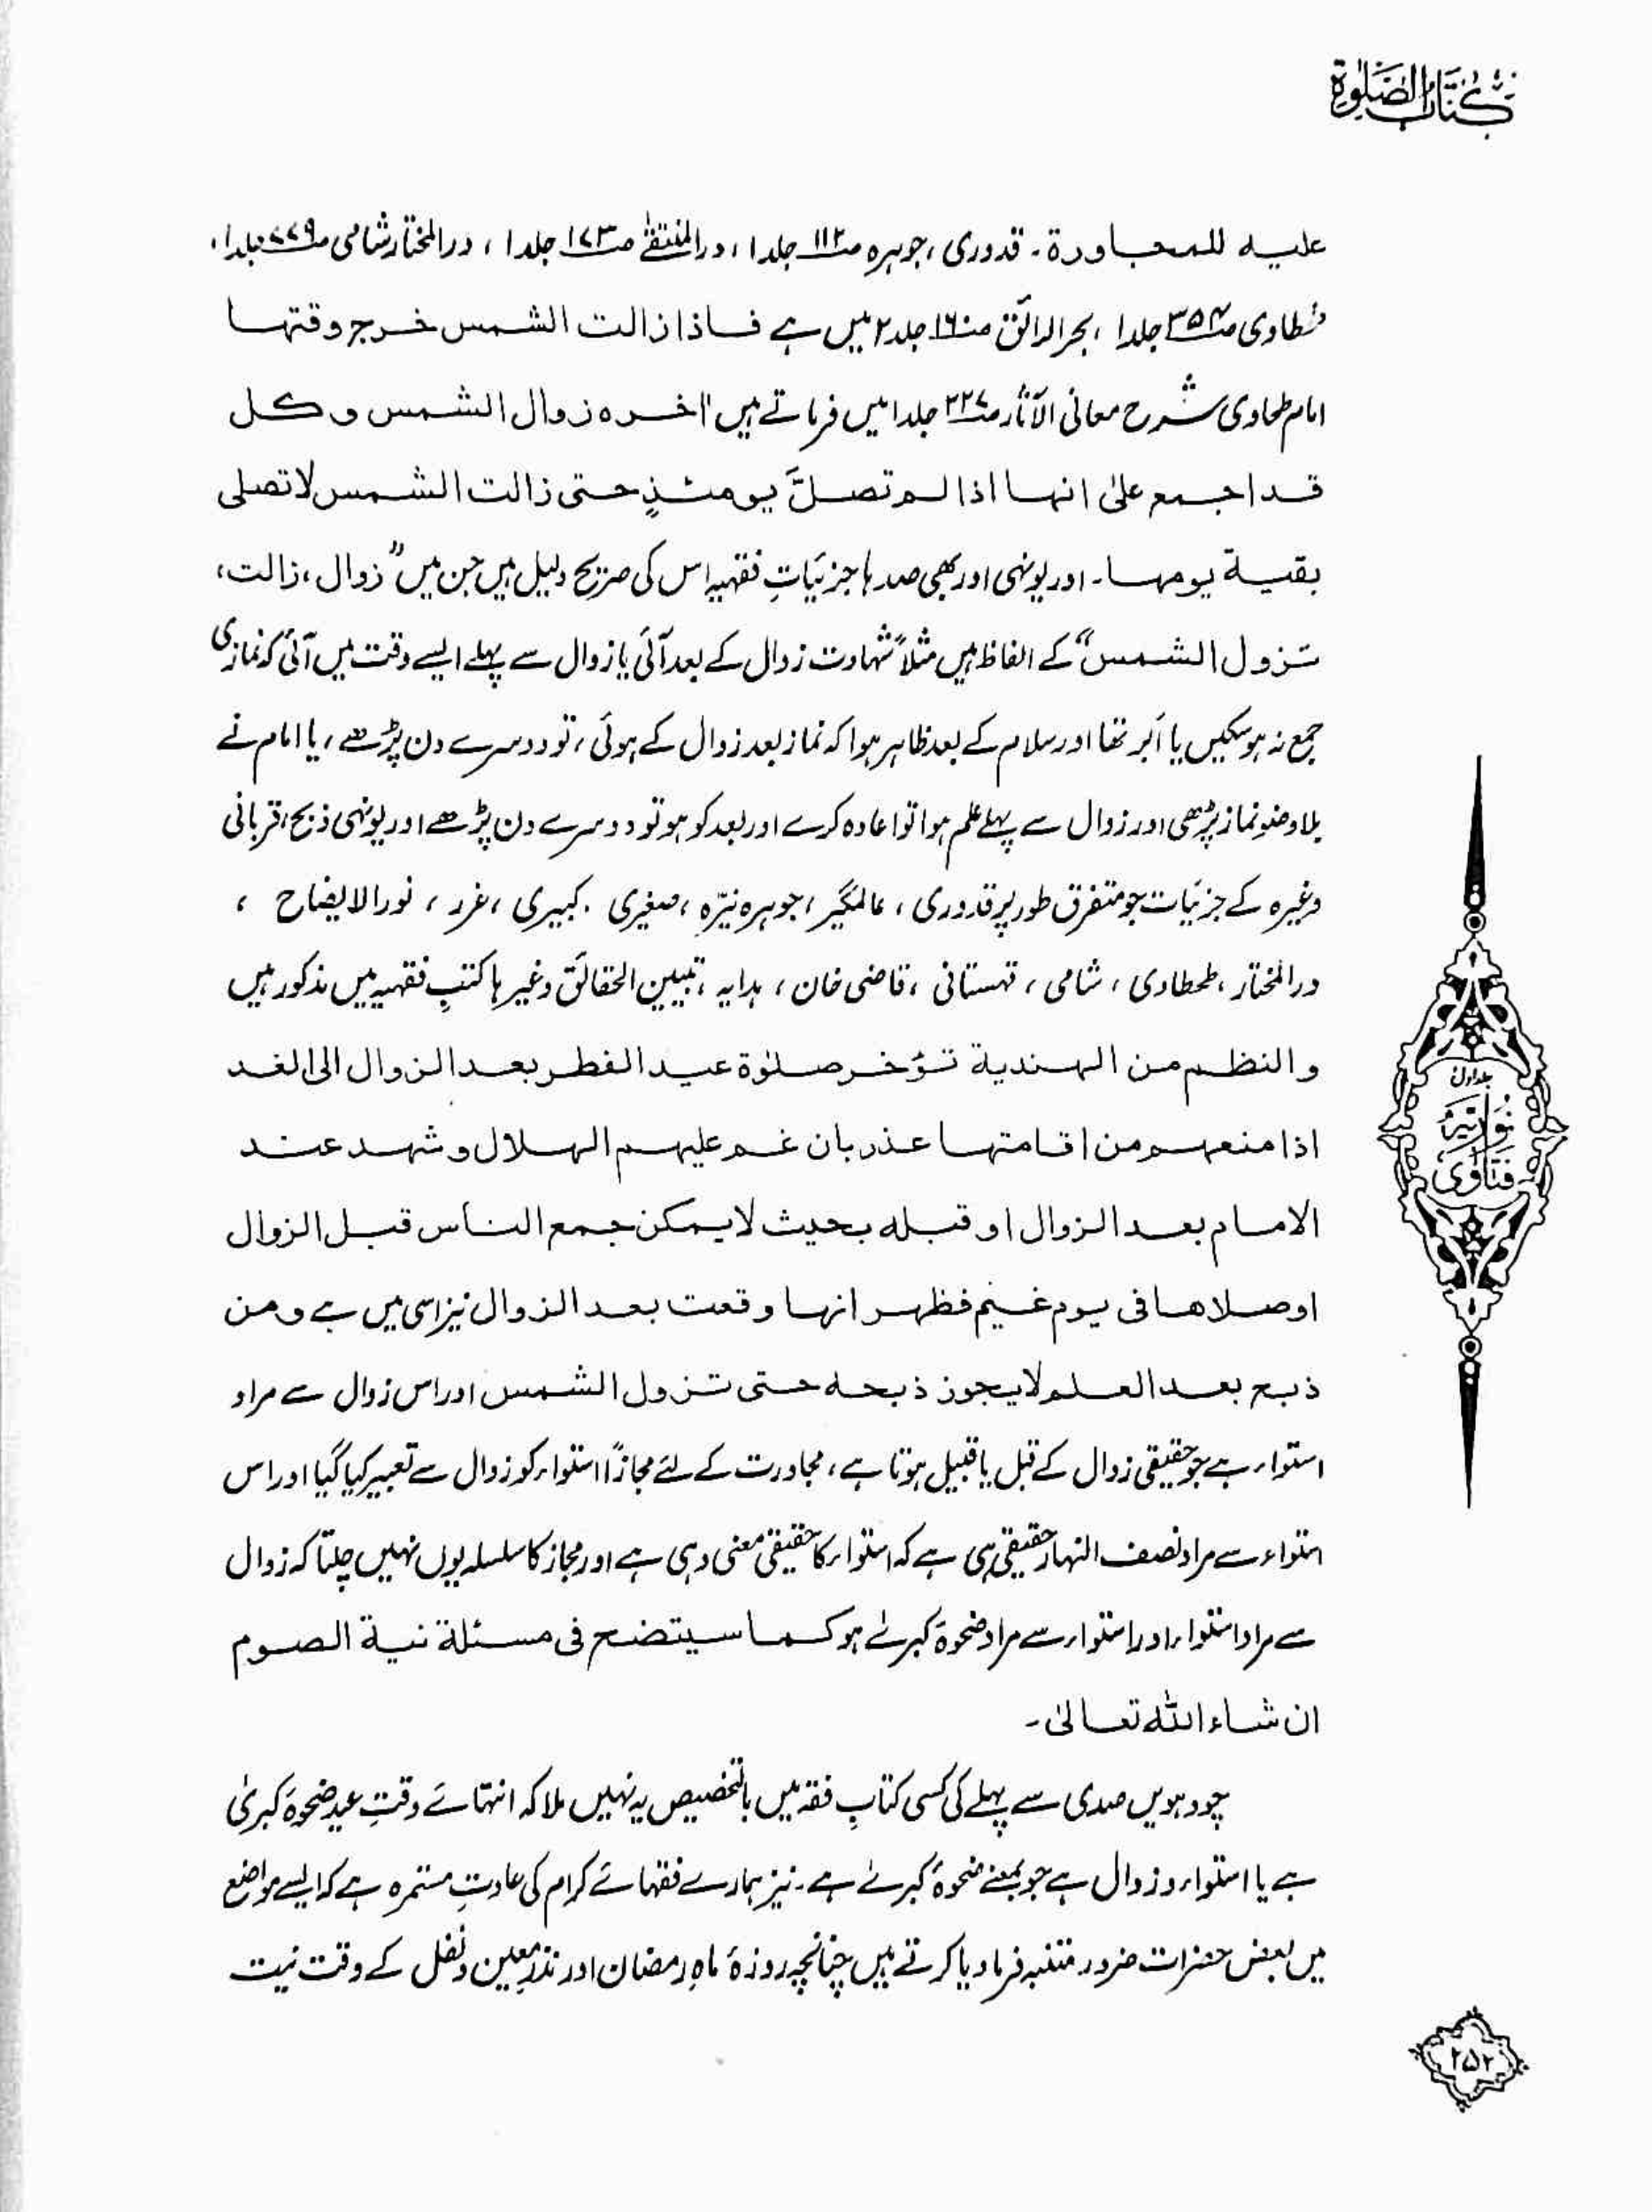 کتاب الصلوٰۃ
علیہ للمجاورة۔ قدوری ، جوہرہ ص۱۱۲ جلد۱ ، درالمنتقےٰ ص۱۷۳ جلد۱ ، درالمختار شامی ص۷۷۹ جلد۱،
طحطاوی ص۳۵۴ جلد۱ ، بحرالرائق ص۱۶۰ جلد۲ میں ہے فاذا زالت الشمس خرج وقتها
امام طحاوی شرح معانی الآثار ص۲۲۷ جلد۱ میں فرماتے ہیں اخره زوال الشمس وكل
قد اجمع علیٰ انها اذا لم تصلَّ يومئذٍ حتى زالت الشمس لا تصلى
بقیۃ یومها۔ اور یونہی اور بھی صدہا جزئیاتِ فقہیہ اس کی صریح دلیل ہیں جن میں ”زوال ، زالت،
تزول الشمس“ کے الفاظ ہیں مثلاً شہادت زوال کے بعد آئی یا زوال سے پہلے ایسے وقت میں آئی کہ نمازی
جمع نہ ہو سکیں یا اَبر تھا اور سلام کے بعد ظاہر ہوا کہ نماز بعد زوال کے ہوئی ، تو دوسرے دن پڑھے ، یا امام نے
بلا وضو نماز پڑھی اور زوال سے پہلے علم ہوا تو اعادہ کرے اور بعد کو ہو تو دوسرے دن پڑھے اور یونہی ذبح ، قربانی
وغیرہ کے جزئیات جو متفرق طور پر قدوری ، عالمگیر ، جوہرہ نیّرہ ، صغیری . کبیری ، غرر ، نورالایضاح ،
درالمختار ، طحطاوی ، شامی ، قہستانی ، قاضی خان ، ہدایہ ، تبیین الحقائق وغیرہا کتبِ فقہیہ میں مذکور ہیں
والنظم من الهندية تؤخر صلوٰة عيد الفطر بعد الزوال الى الغد
اذا منعهم من اقامتها عذر بان غم عليهم الهلال وشهد عند
الامام بعد الزوال او قبله بحيث لا يمكن جمع الناس قبل الزوال
او صلاها فی یوم غیم فظهر انها وقعت بعد الزوال نیز اسی میں ہے ومن
ذبح بعد العلم لا يجوز ذبحه حتى تزول الشمس اور اس زوال سے مراد
استواء ہے جو حقیقی زوال کے قبل یا قبیل ہوتا ہے ، مجاورت کے لئے مجازاً استواء کو زوال سے تعبیر کیا گیا اور اس
استواء سے مراد نصف النہار حقیقی ہی ہے کہ استواء کا حقیقی معنی وہی ہے اور مجاز کا سلسلہ یوں نہیں چلتا کہ زوال
سے مراد استواء اور استواء سے مراد ضحوۃ کبرےٰ ہو کما سیتضح فی مسئلة نية الصوم
ان شاء الله تعالیٰ۔
چودہویں صدی سے پہلے کی کسی کتابِ فقہ میں بالتخصیص یہ نہیں ملا کہ انتہائے وقتِ عید ضحوۂ کبریٰ
ہے یا استواء و زوال ہے جو بمعنے ضحوۂ کبرےٰ ہے۔ نیز ہمارے فقہائے کرام کی عادتِ مستمرہ ہے کہ ایسے مواضع
میں بعض حضرات ضرور متنبہ فرما دیا کرتے ہیں چنانچہ روزۂ ماہِ رمضان اور نذر معین و نفل کے وقت نیت
جلد اول
فتاویٰ نوریہ
۲۵۲